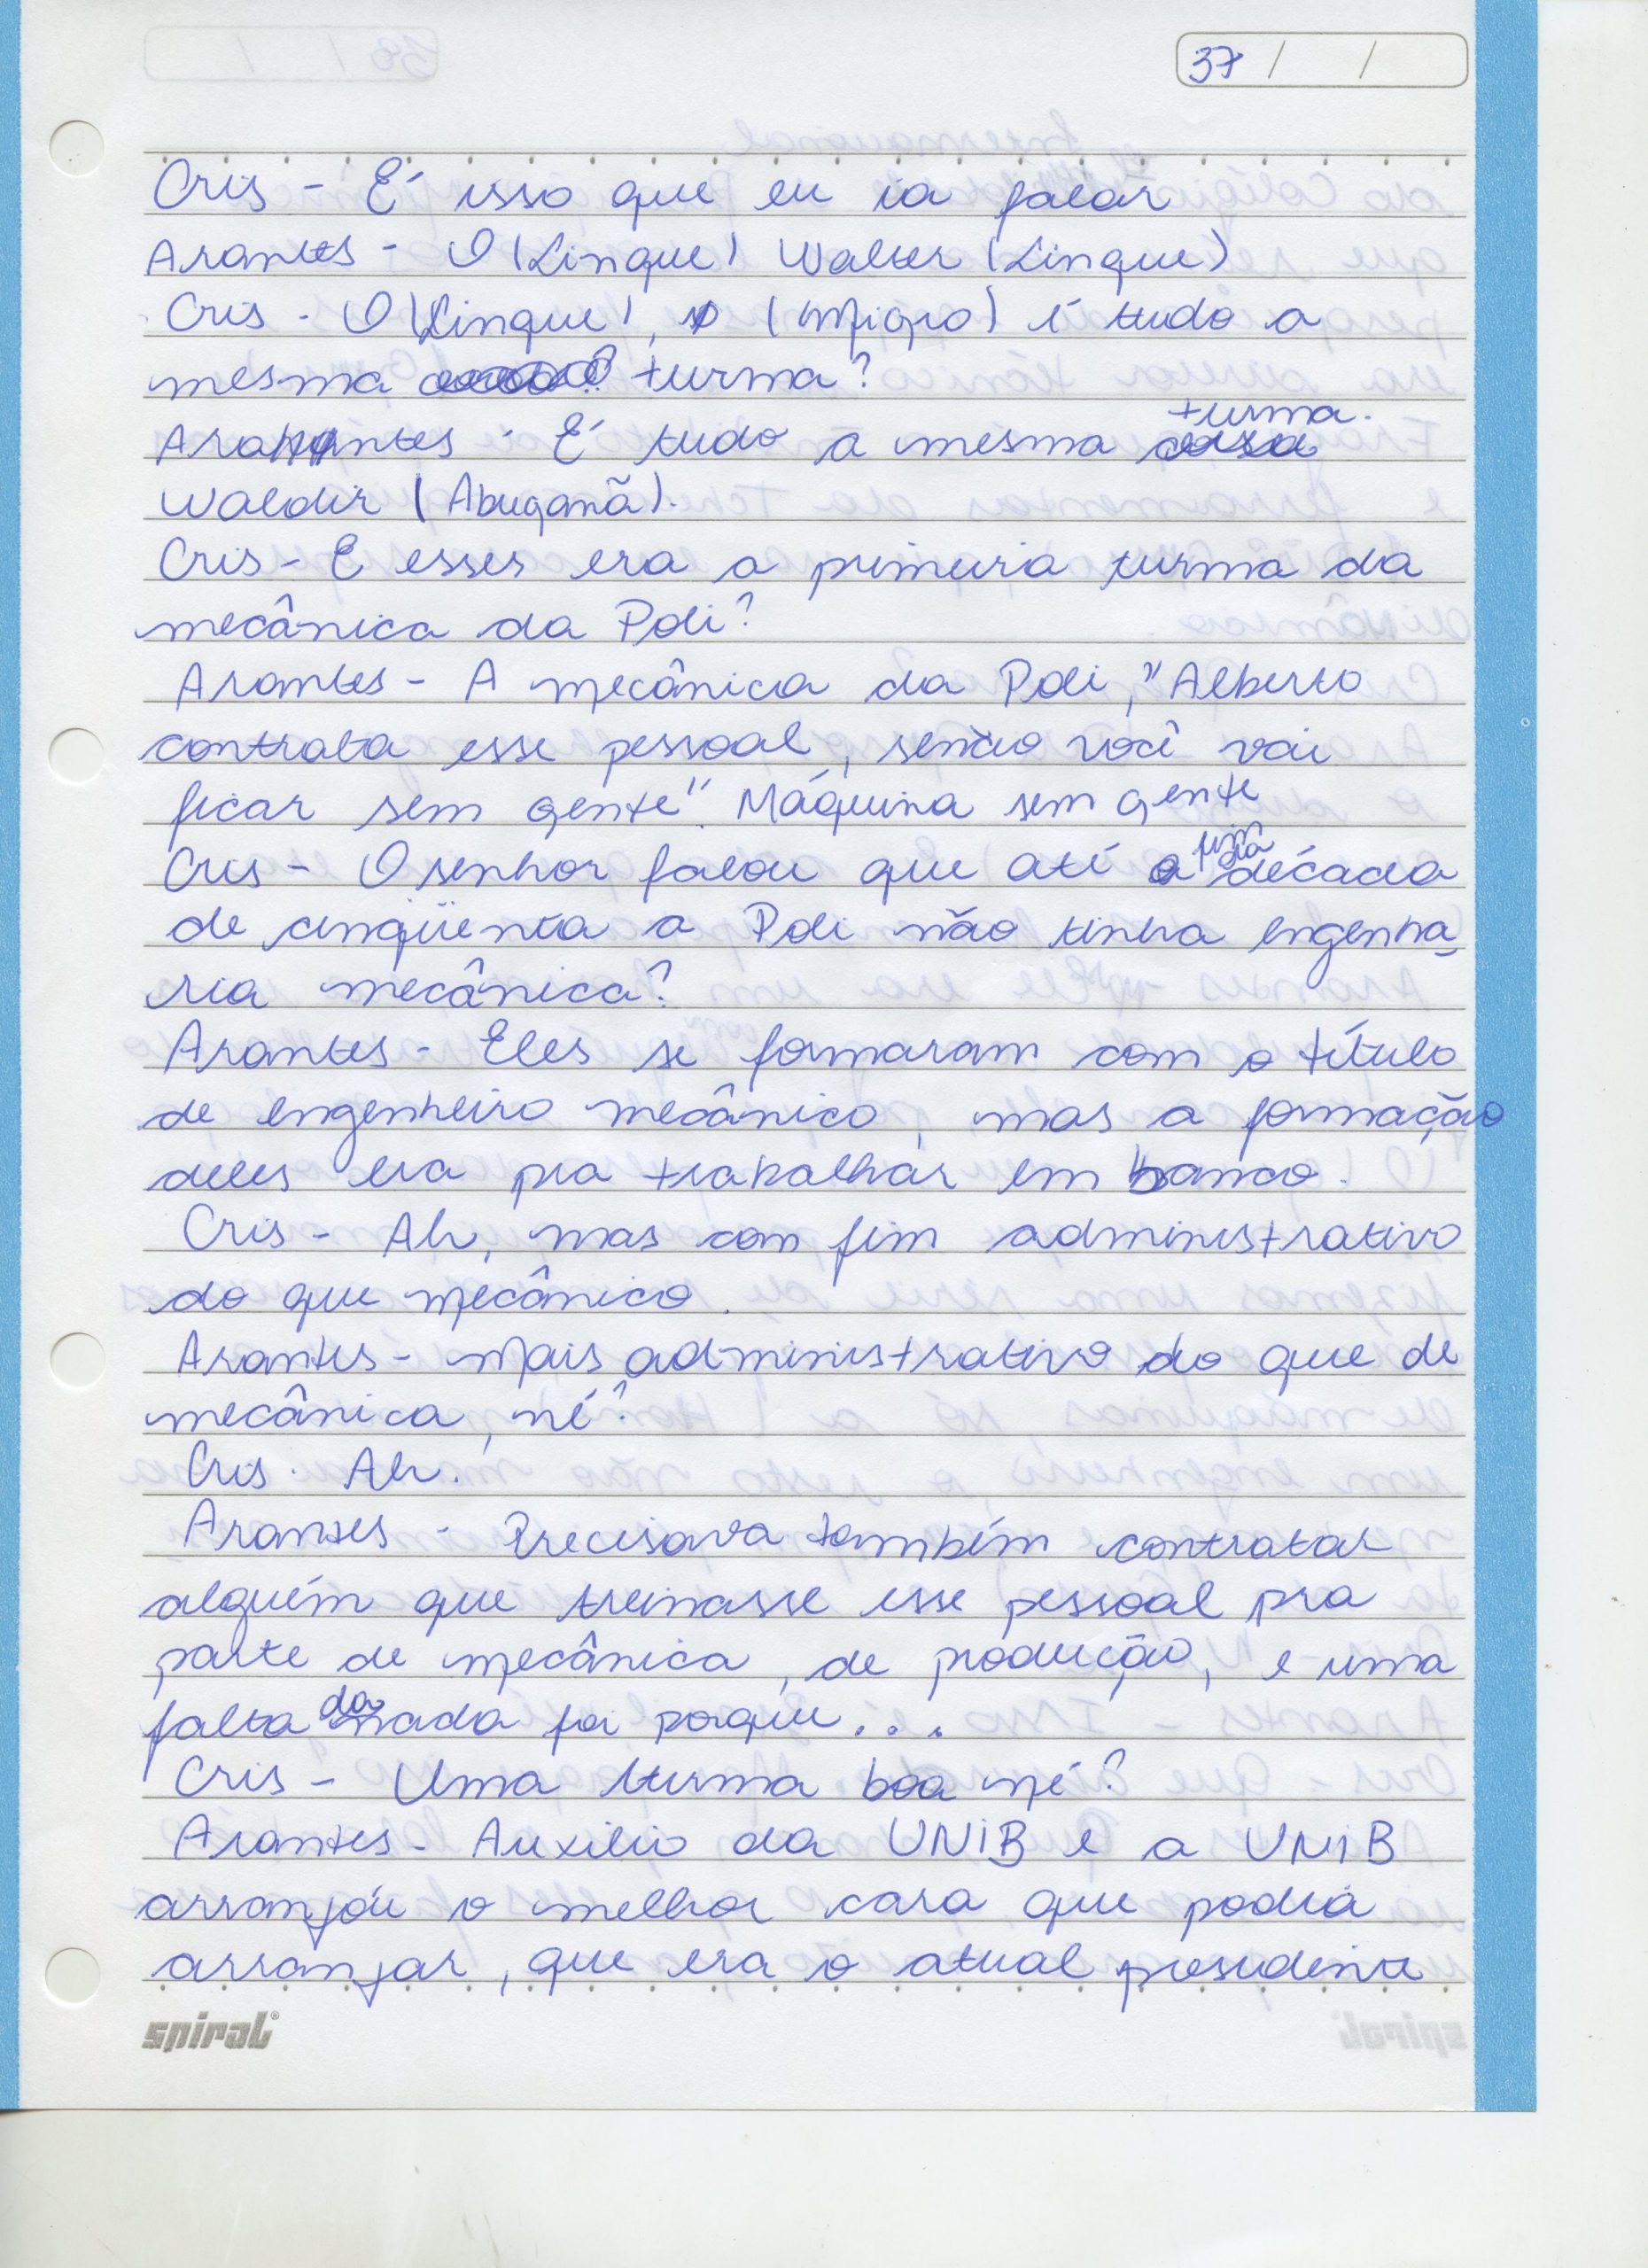 37 / /
Cris - É isso que eu ia falar
Arantes - O (Lingue) Walter (Lingue)
Cris - O (Lingue), o (Migro) é tudo a
mesma turma?
Arantes - É tudo a mesma turma.
Waldir (Abuganã).
Cris - E esses era a primeira turma da
mecânica da Poli?
Arantes - A mecânica da Poli, "Alberto
contrata esse pessoal, senão você vai
ficar sem gente". Máquina sem gente
Cris - O senhor falou que até fim da década
de cinqüenta a Poli não tinha engenha
ria mecânica?
Arantes - Eles se formaram com o título
de engenheiro mecânico, mas a formação
deles era pra trabalhar em banco.
Cris - Ah, mas com fim administrativo
do que mecânico.
Arantes - Mais administrativo do que de
mecânica, né?
Cris - Ah.
Arantes - Precisava também contratar
alguém que treinasse esse pessoal pra
parte de mecânica, de produção, e uma
falta danada foi porque...
Cris - Uma turma boa né?
Arantes - Auxílio da UNIB e a UNIB
arranjou o melhor cara que podia
arranjar, que era o atual presidente
spiral®